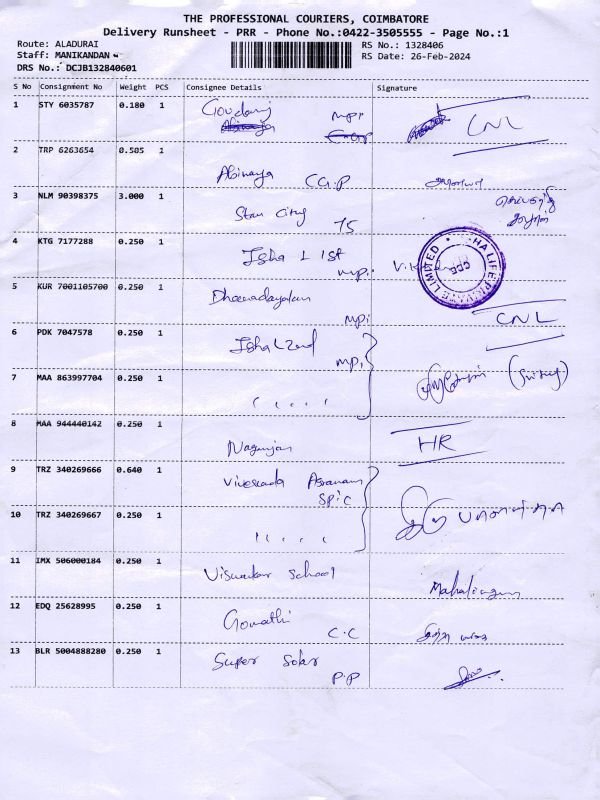 THE PROFESSIONAL COURIERS, COIMBATORE
Delivery Runsheet - PRR - Phone No.:0422-3505555 - Page No.:1
Route: ALADURAI
RS No.: 1328406
Staff: MANIKANDAN
RS Date: 26-Feb-2024
DRS No.: DCJB132840601
S No Consignment No Weight PCS Consignee Details Signature
1 STY 6035787 0.180 1
CNL
2 TRP 6263654 0.505 1 Abinaya CG.P
3 NLM 90398375 3.000 1 Star City 75
4 KTG 7177288 0.250 1 Isha L 1st mpi
5 KUR 7001105700 0.250 1 Dheenadayalan mpi CNL
6 PDK 7047578 0.250 1 Isha L 2nd mpi
7 MAA 863997704 0.250 1 " "
8 MAA 944440142 0.250 1 Nagarajan HR
9 TRZ 340269666 0.640 1 SPIC
10 TRZ 340269667 0.250 1 " "
11 IMX 506000184 0.250 1 School Mahalingam
12 EDQ 25628995 0.250 1 Gomathi C.C
13 BLR 5004888280 0.250 1 Super Solar P.P